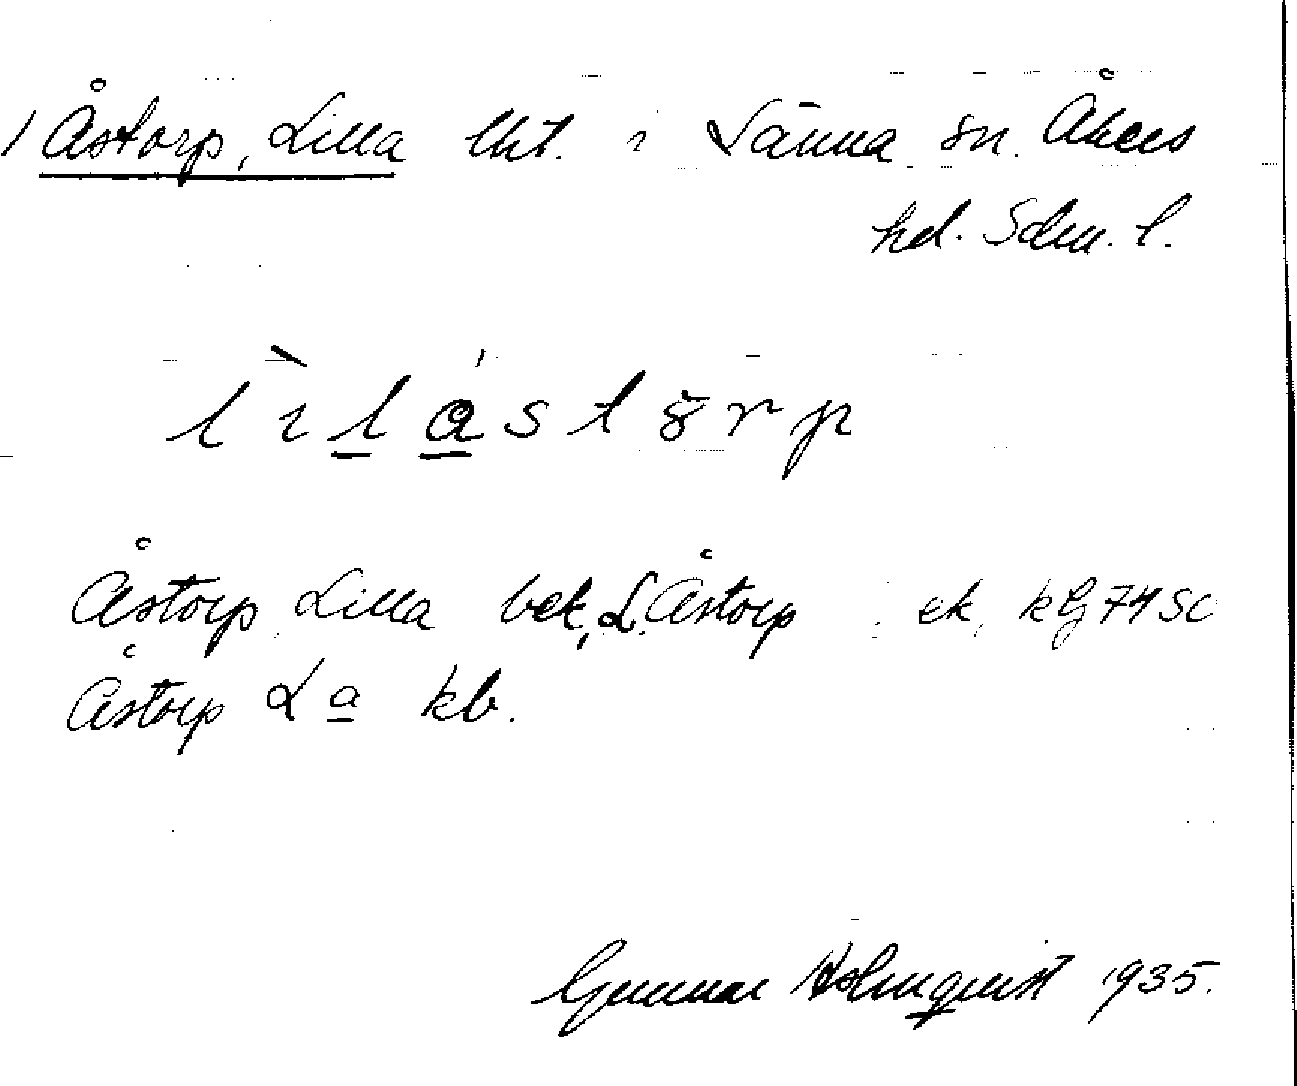 / Åstorp, Lilla lht. i Länna sn. Åkers
hd. Sdm. l.
lìlåstŏrp
Åstorp Lilla bek, L. Åstorp ek, kG 74 SC
Åstorp L a kb.
Gunnar Holmquist 1935.